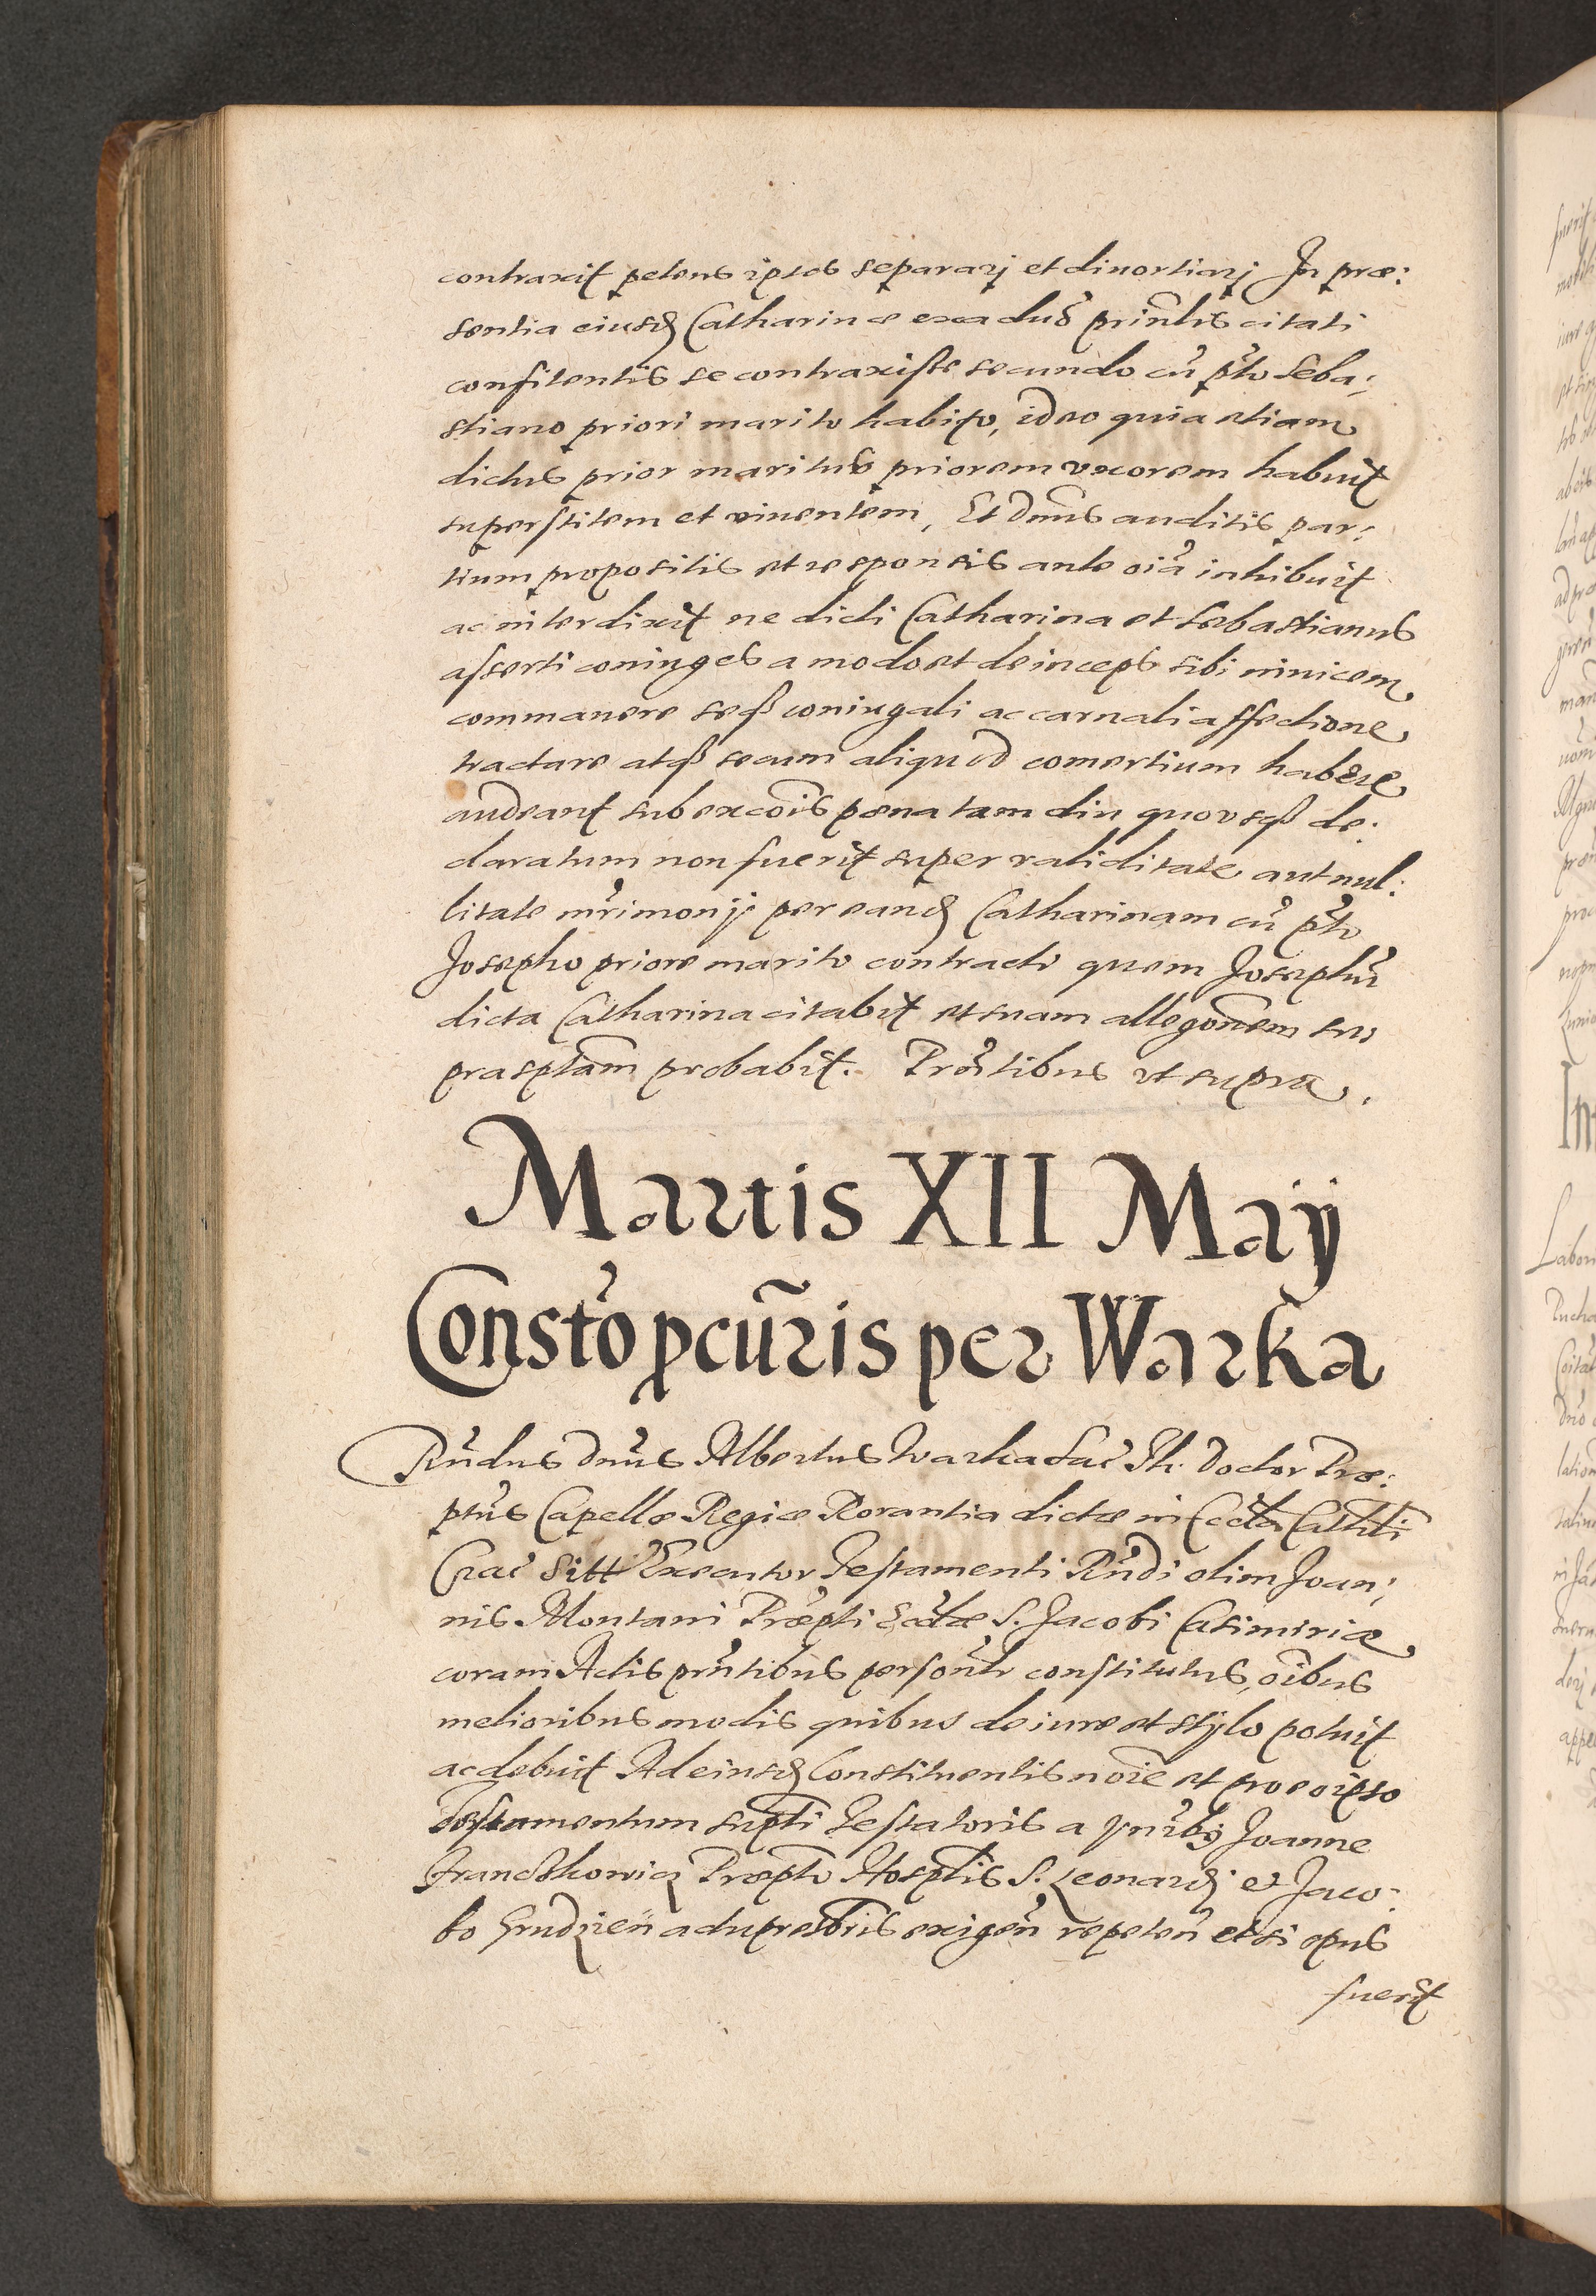 contraxit petens ipsos separarj et diuortiarj In præ:
sentia eiusd Catharinæ ex aduõ prin̄lis citati
confitentis se contraxisse secundo cũ p̃to Seba:
stiano priori marito habito, ideo quia etiam
dictus prior maritus priorem vxorem habuit
superstitem et viuentem, Et Dn̄us auditis par:
tium propositis et responsis ante oĩa inhibuit
ac interdixit ne dicti Catharina et Sebastianus
asserti coniuges a modo et deinceps sibi inuicem
commanere seqꝫ coniugali ac carnali affectione
tractare atqꝫ secum aliquod comertium habere
audeant sub excõis pœna tam diu quovsqꝫ de:
claratum non fuerit super validitate aut nul:
litate mr̃imonij per eand Catharinam cũ p̃to
Josepho priore marito contracti quem Josephũ
dicta Catharina citabit et suam allegõnem su:
prasp̃tam probabit. Prñtibus vt supra.
Martis XII Maij
Consto͂ pcũris per Warka
Rñdus Dnũs Albertus Warka Sac̃ Th. Doctor Præ:
ptũs Capellæ Regiæ Rorantia dictæ in Eccła Cathłi
Crac̃ sitæ Executor Testamenti Rñdi olim Joan:
nis Montani Præp̃ti Ecclæ S. Jacobi Casimiriæ
coram Actis prñtibus persoñlr constitutus, oĩbus
melioribus modis quibus de iure et stijlo potuit
ac debuit Ad eiusd Constituentis noĩe et pro eo ipso
Testamentum sup̃ti Testatoris a Joanne
Præp̃to Hosp̃lis S. Leonardj et Jaco:
bo exigeñ repeteñ et si opus
fuerit